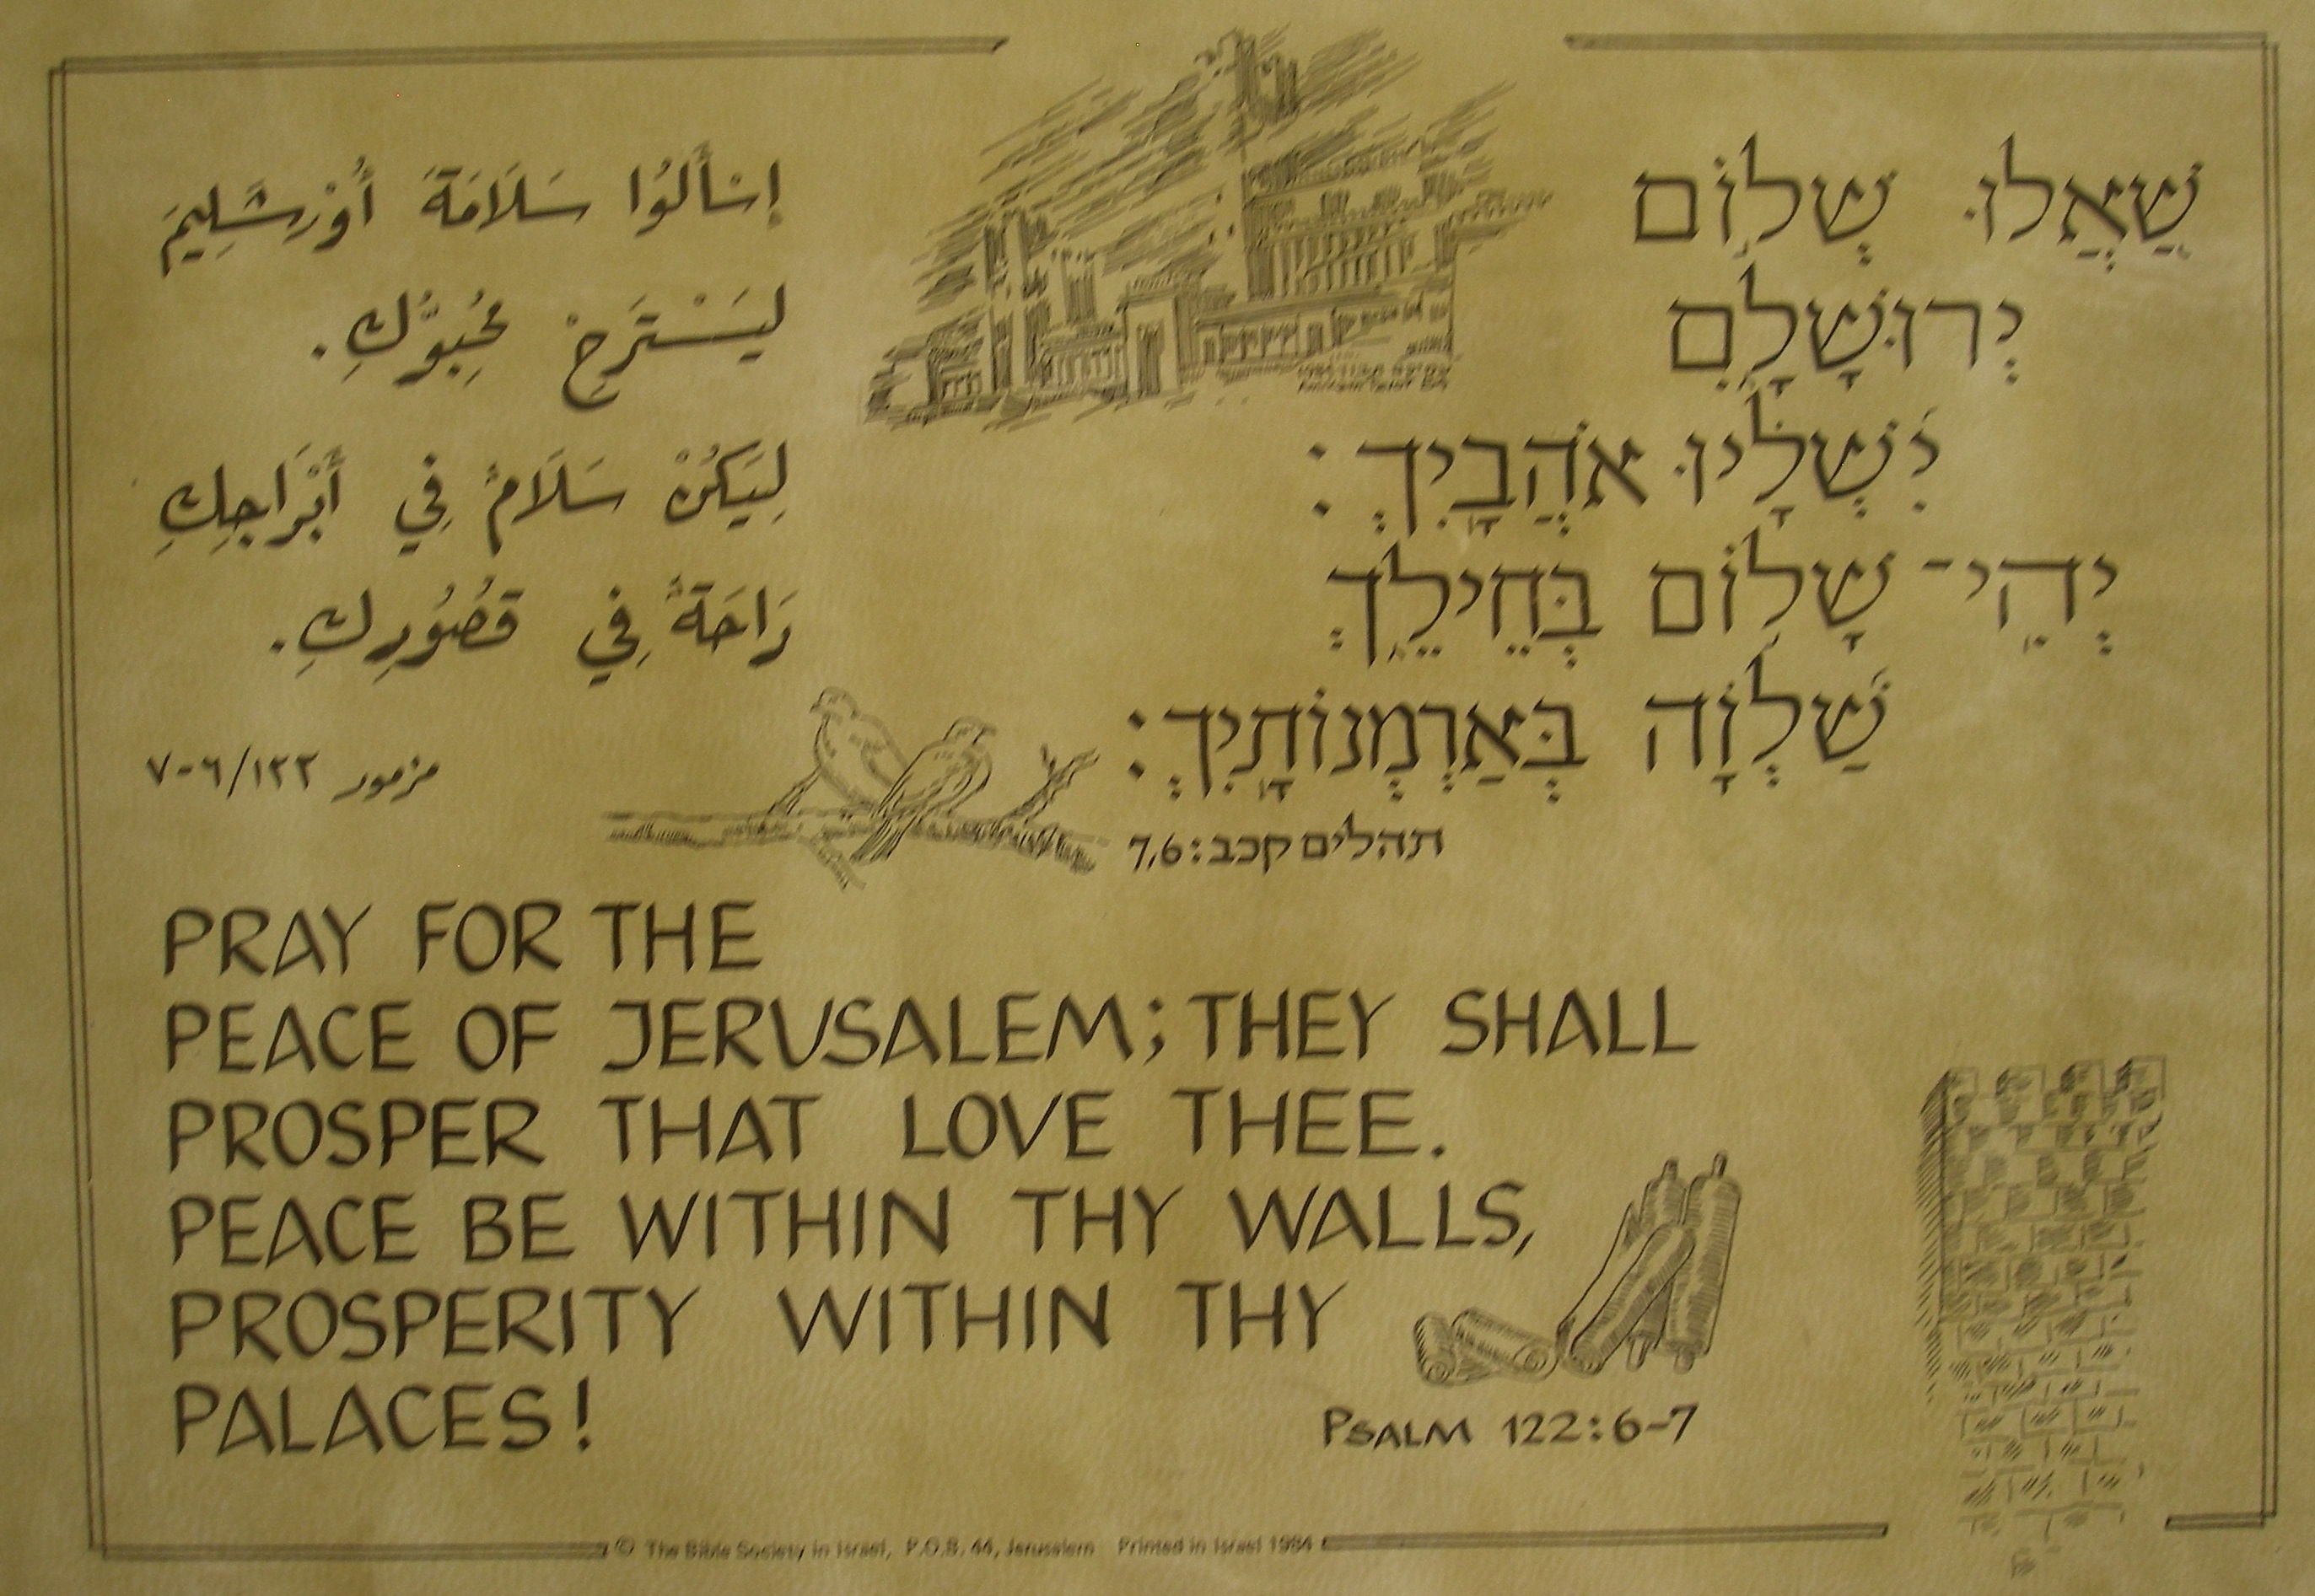 إسْأَلُوا سَلَامَةَ أُوْرْشَلِيمَ
لِيَسْتَرِحْ مُحِبُّوكِ.
لِيَكُنْ سَلَامٌ فِي أَبْرَاجِكِ
رَاحَةٌ فِي قُصُورِكِ.
مزمور ١٢٢/٦-٧
שַׁאֲלוּ שְׁלוֹם
יְרוּשָׁלָ͏ִם
יִשְׁלָיוּ אֹהֲבָיִךְ:
יְהִי־שָׁלוֹם בְּחֵילֵךְ
שַׁלְוָה בְּאַרְמְנוֹתָיִךְ:
תהלים קכב:7,6
PRAY FOR THE
PEACE OF JERUSALEM; THEY SHALL
PROSPER THAT LOVE THEE.
PEACE BE WITHIN THY WALLS,
PROSPERITY WITHIN THY
PALACES!
PSALM 122:6-7
© The Bible Society in Israel, P.O.B. 44, Jerusalem Printed in Israel 1984